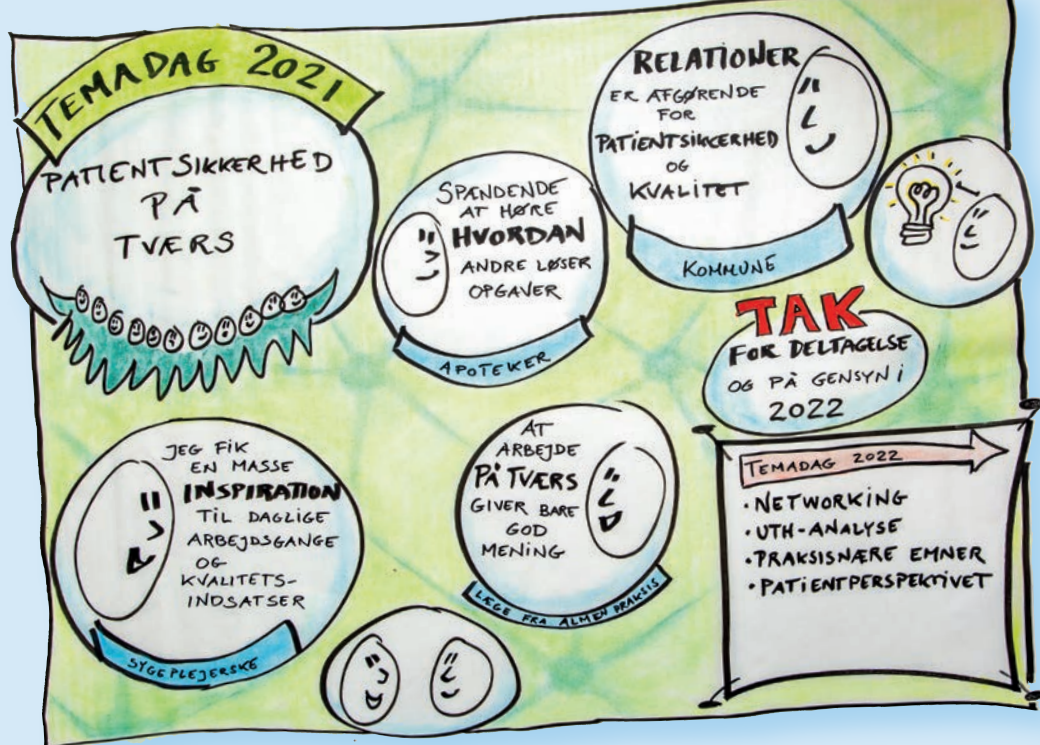 TEMADAG 2021
PATIENTSIKKERHED
PÅ
TVÆRS
SPÆNDENDE
AT HØRE
HVORDAN
ANDRE LØSER
OPGAVER
APOTEKER
RELATIONER
ER AFGØRENDE
FOR
PATIENTSIKKERHED
OG
KVALITET
KOMMUNE
TAK
FOR DELTAGELSE
OG PÅ GENSYN i
2022
JEG FIK
EN MASSE
INSPIRATION
TIL DAGLIGE
ARBEJDSGANGE
OG
KVALITETS-
INDSATSER
SYGEPLEJERSKE
AT
ARBEJDE
PÅ TVÆRS
GIVER BARE
GOD
MENING
LÆGE FRA ALMEN PRAKSIS
TEMADAG 2022
• NETWORKING
• UTH-ANALYSE
• PRAKSISNÆRE EMNER
• PATIENTPERSPEKTIVET